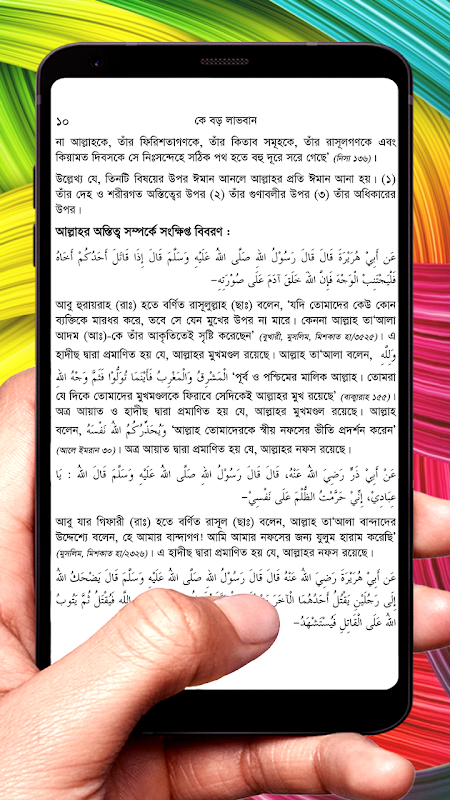 ১০ কে বড় লাভবান
না আল্লাহকে, তাঁর ফিরিশতাগণকে, তাঁর কিতাব সমূহকে, তাঁর রাসূলগণকে এবং
কিয়ামত দিবসকে সে নিঃসন্দেহে সঠিক পথ হতে বহু দূরে সরে গেছে’ (নিসা ১৩৬)।
উল্লেখ্য যে, তিনটি বিষয়ের উপর ঈমান আনলে আল্লাহর প্রতি ঈমান আনা হয়। (১)
তাঁর দেহ ও শরীরগত অস্তিত্বের উপর (২) তাঁর গুণাবলীর উপর (৩) তাঁর অধিকারের
উপর।
আল্লাহর অস্তিত্ব সম্পর্কে সংক্ষিপ্ত বিবরণ :
عَن أَبِيْ هُرَيْرَةَ قَالَ قَالَ رَسُوْلُ الله صَلَّى اللهُ عَلَيْهِ وَسَلَّمَ قَالَ إِذَا قَاتَلَ أَحَدُكُمْ أَخَاهُ
فَلْيَجْتَنِبْ الْوَجْهَ فَإِنَّ اللهَ خَلَقَ آدَمَ عَلَى صُوْرَتِهِ-
আবু হুরায়রাহ (রাঃ) হতে বর্ণিত রাসূলুল্লাহ (ছাঃ) বলেন, ‘যদি তোমাদের কেউ কোন
ব্যক্তিকে মারধর করে, তবে সে যেন মুখের উপর না মারে। কেননা আল্লাহ তা‘আলা
আদম (আঃ)-কে তাঁর আকৃতিতেই সৃষ্টি করেছেন’ (বুখারী, মুসলিম, মিশকাত হা/৩৫২৫)। এ
হাদীছ দ্বারা প্রমাণিত হয় যে, আল্লাহর মুখমণ্ডল রয়েছে। আল্লাহ তা‘আলা বলেন, وَللهِ
الْمَشْرِقُ وَالْمَغْرِبُ فَأَيْنَمَا تُوَلُّوْا فَثَمَّ وَجْهُ اللهِ ‘পূর্ব ও পশ্চিমের মালিক আল্লাহ। তোমরা
যে দিকে তোমাদের মুখমণ্ডলকে ফিরাবে সেদিকেই আল্লাহর মুখ রয়েছে’ (বাক্বারাহ ১৫৫)।
অত্র আয়াত ও হাদীছ দ্বারা প্রমাণিত হয় যে, আল্লাহর মুখমণ্ডল রয়েছে। আল্লাহ
বলেন, وَيُحَذِّرُكُمُ اللهُ نَفْسَهُ ‘আল্লাহ তোমাদেরকে স্বীয় নফসের ভীতি প্রদর্শন করেন’
(আলে ইমরান ৩০)। অত্র আয়াত দ্বারা প্রমাণিত হয় যে, আল্লাহর নফস রয়েছে।
عَنْ أَبِيْ ذَرٍّ رَضِيَ اللهُ عَنْهُ، قَالَ قَالَ رَسُوْلُ اللهِ صَلَّى اللهُ عَلَيْهِ وَسَلَّمَ قَالَ اللهُ : يَا
عِبَادِيْ، إِنِّيْ حَرَّمْتُ الظُّلْمَ عَلَى نَفْسِيْ-
আবু যার গিফারী (রাঃ) হতে বর্ণিত রাসূল (ছাঃ) বলেন, আল্লাহ তা‘আলা বান্দাদের
উদ্দেশ্যে বলেন, হে আমার বান্দাগণ! আমি আমার নফসের জন্য যুলুম হারাম করেছি’
(মুসলিম, মিশকাত হা/২৩২৬)। এ হাদীছ দ্বারা প্রমাণিত হয় যে, আল্লাহর নফস রয়েছে।
عَنْ أَبِيْ هُرَيْرَةَ رَضِيَ اللهُ عَنْهُ قَالَ قَالَ رَسُوْلُ اللهِ صَلَّى اللهُ عَلَيْهِ وَسَلَّمَ قَالَ يَضْحَكُ اللهُ
إِلَى رَجُلَيْنِ يَقْتُلُ أَحَدُهُمَا الْآخَرَ اللهِ فَيُقْتَلُ ثُمَّ يَتُوبُ
اللهُ عَلَى الْقَاتِلِ فَيُسْتَشْهَدُ-